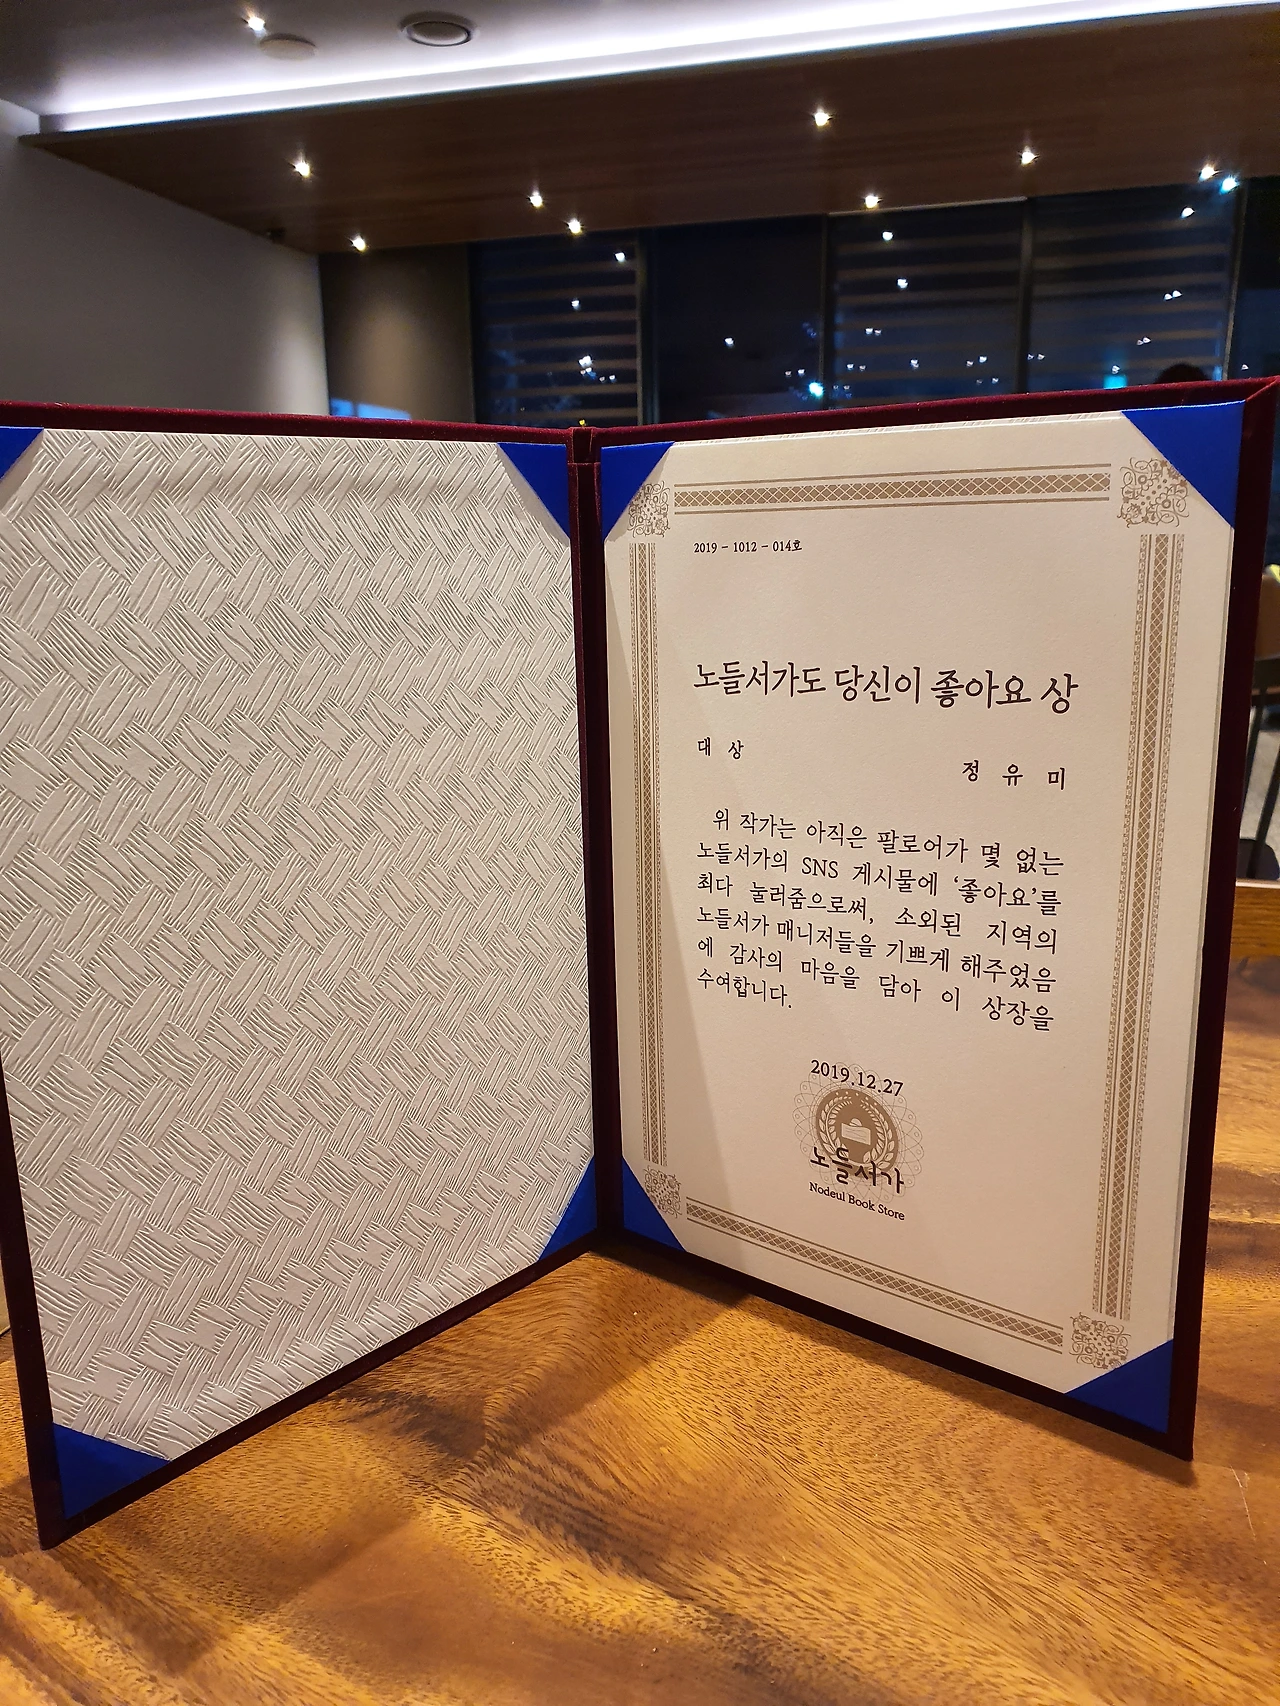 2019 - 1012 - 014호
노들서가도 당신이 좋아요 상
대 상
정 유 미
위 작가는 아직은 팔로어가 몇 없는
노들서가의 SNS 게시물에 ‘좋아요’를
최다 눌러줌으로써, 소외된 지역의
노들서가 매니저들을 기쁘게 해주었음
에 감사의 마음을 담아 이 상장을
수여합니다.
2019.12.27
노들서가
Nodeul Book Store